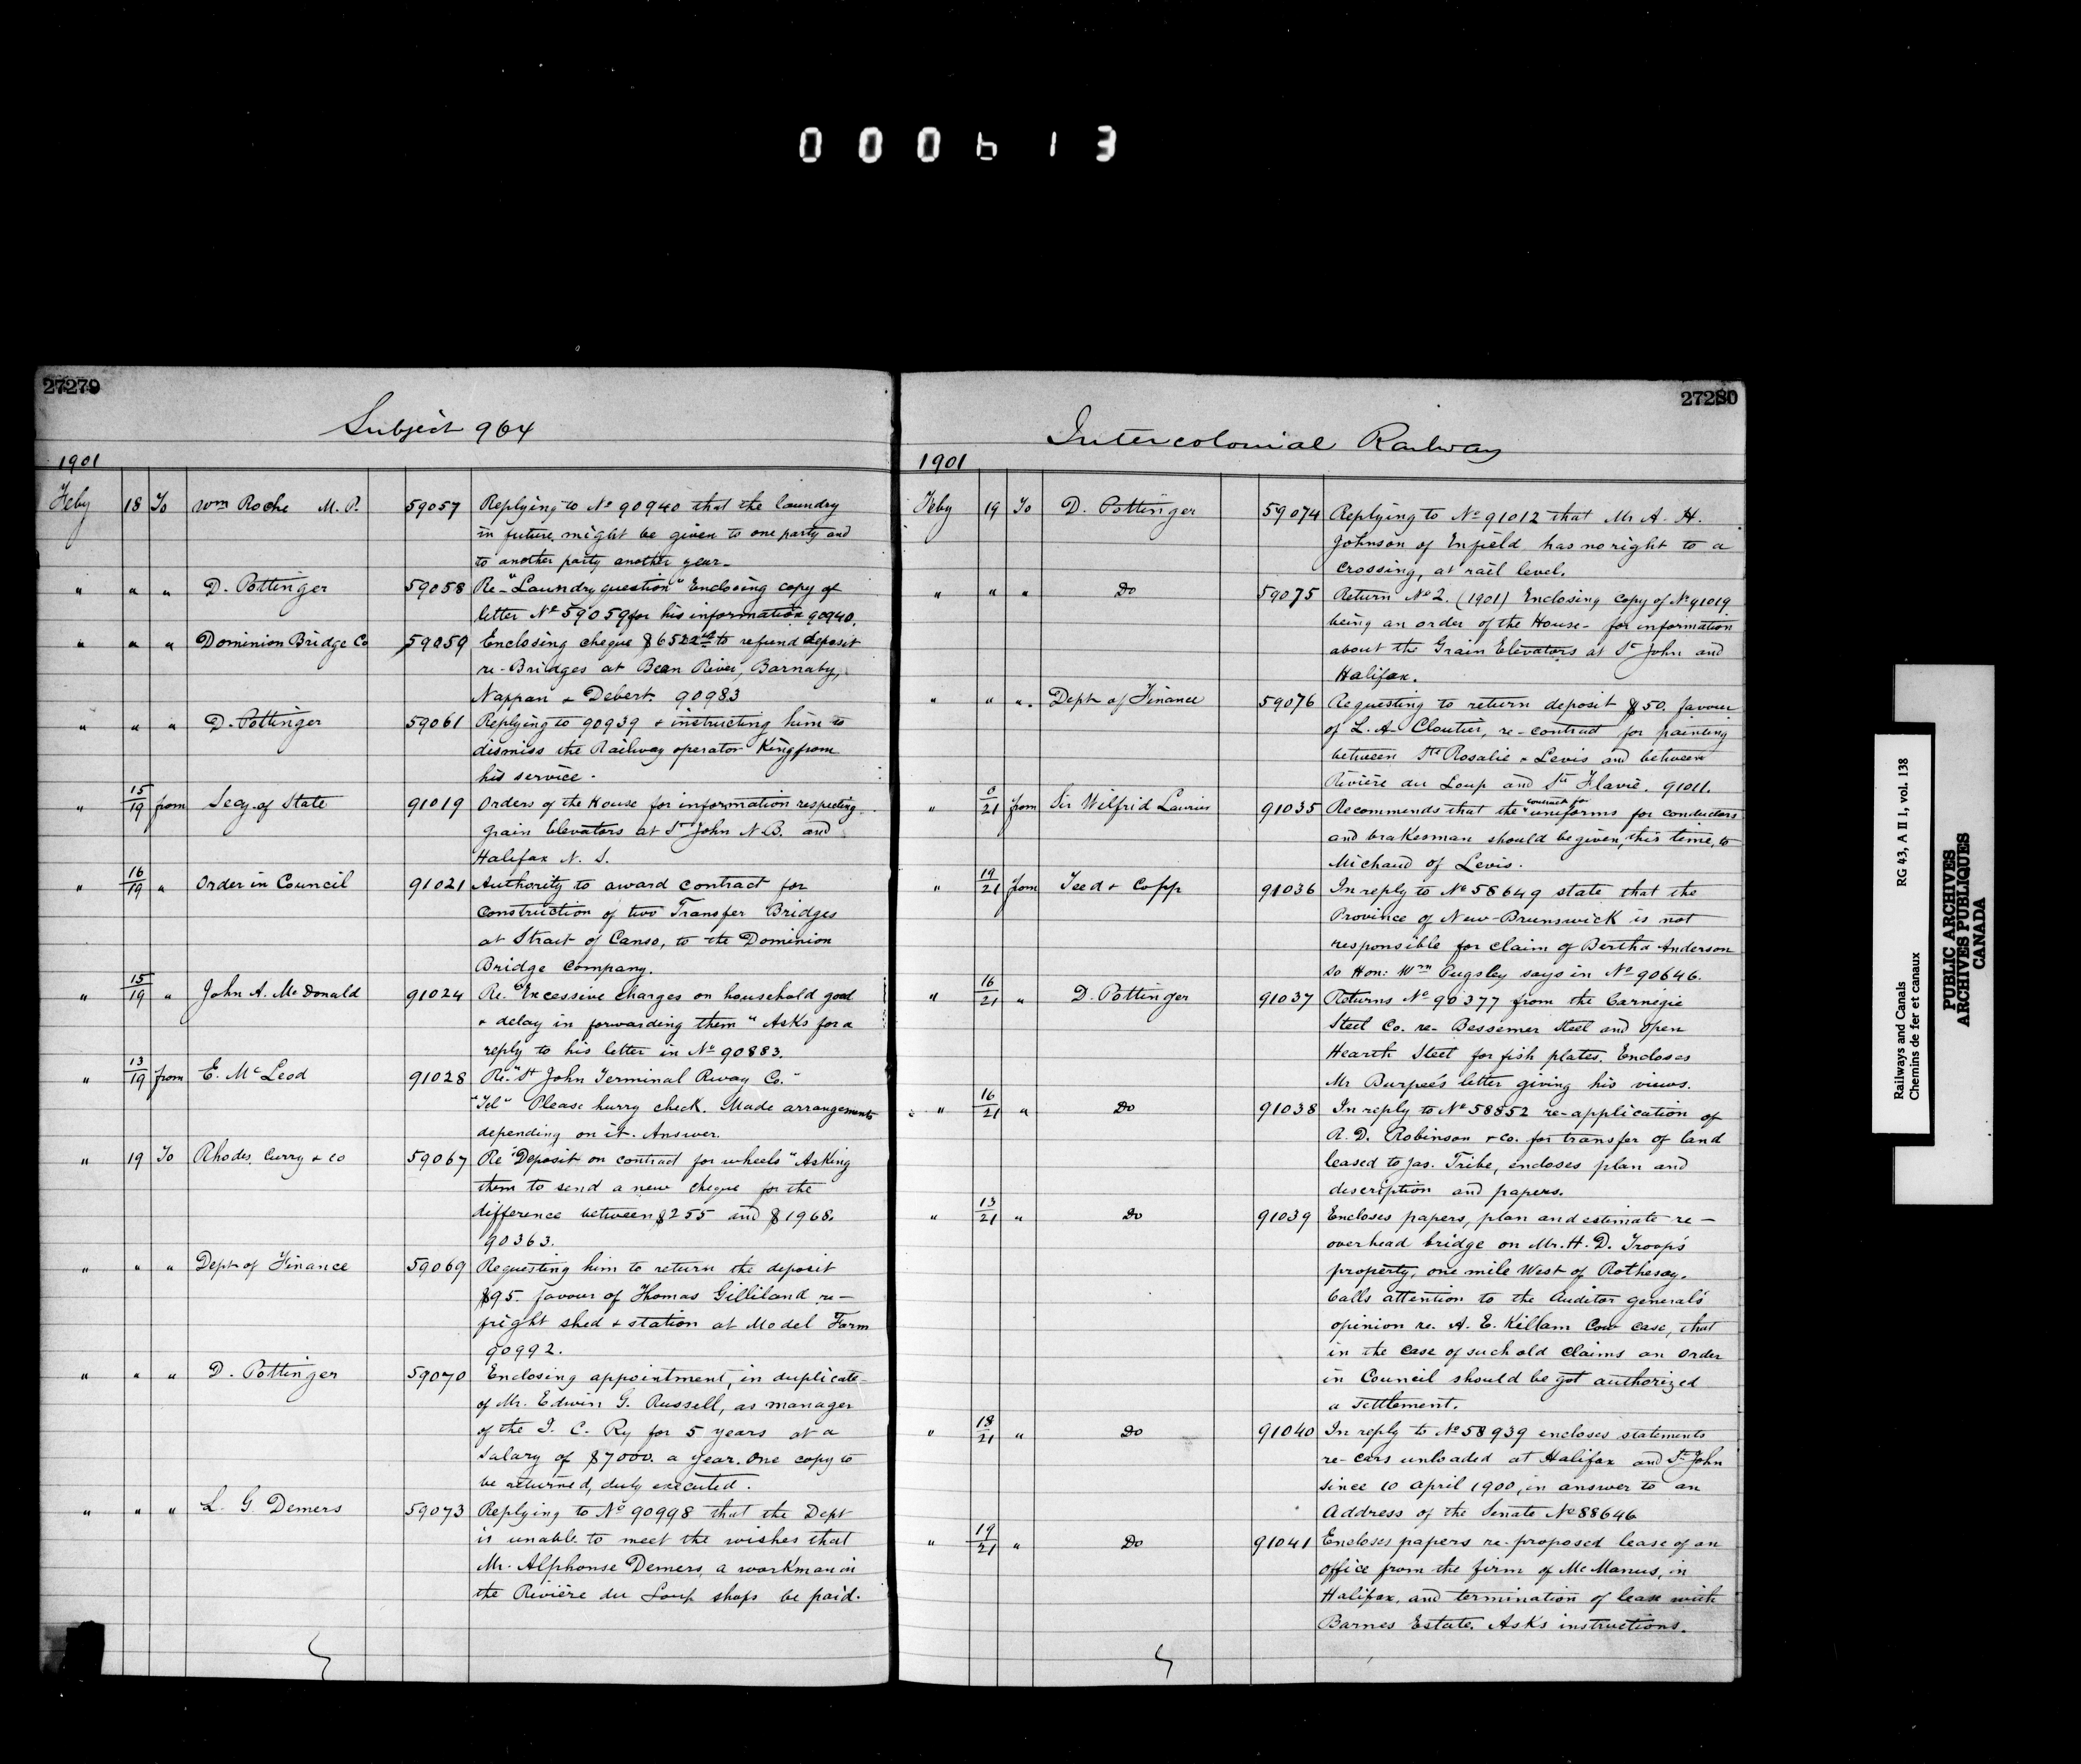 000613
27279
Subject 964
1901
Feby 18 To Wm Roche M. P. 59057 Replying to No 90940 that the laundry
in future might be given to one party and
to another party another year-
" " " D. Pottinger 59058 Re-"Laundry question" Enclosing copy of
letter No 59059 for his information 90940.
" " " Dominion Bridge Co 59059 Enclosing cheque to refund deposit
re-Bridges at Bean River, Barnaby,
Nappan & Debert. 90983
" " " D. Pottinger 59061 Replying to 90939 & instructing him to
dismiss the Railway operator King from
his service.
" 15/19 from Secy. of State 91019 Orders of the House for information respecting
grain Elevators at St John N.B. and
Halifax N. S.
" 16/19 " Order in Council 91021 Authority to award contract for
construction of two Transfer Bridges
at Strait of Canso, to the Dominion
Bridge Company.
" 15/19 " John A. McDonald 91024 Re. "Excessive charges on household good
& delay in forwarding them" Asks for a
reply to his letter in No 90883.
" 13/19 from E. McLeod 91028 Re. "St John Terminal Rway Co."
"Tel" Please hurry check. Made arrangements
depending on it. Answer.
" 19 To Rhodes, Curry & Co 59067 Re "Deposit on contract for wheels" Asking
them to send a new cheque for the
difference between $255 and $1968.
90363.
" " " Dept of Finance 59069 Requesting him to return the deposit
$95. favour of Thomas Gilliland re-
fright shed & station at Model Farm
90992.
" " " D. Pottinger 59070 Enclosing appointment, in duplicate
of Mr. Edwin G. Russell, as manager
of the I. C. Ry for 5 years at a
Salary of $7000. a year. One copy to
be returned, duly executed.
" " " L. G Demers 59073 Replying to No 90998 that the Dept
is unable to meet the wishes that
Mr. Alphonse Demers, a workman in
the Rivière du Loup shops be paid.
27280
Intercolonial Railway
1901
Feby 19 To D. Pottinger 59074 Replying to No 91012 that Mr A. H.
Johnson of Enfield has no right to a
crossing, at rail level.
" " " Do 59075 Return No 2. (1901) Enclosing copy of No 91019
being an order of the House- for information
about the Grain Elevators at St John and
Halifax.
" " " Dept of Finance 59076 Requesting to return deposit $50. favour
of L. A. Cloutier, re-contract for painting
between Ste Rosalie & Levis and between
Rivière du Loup and Ste Flavie. 91011.
" 0/21 from Sir Wilfrid Laurier 91035 Recommends that the contract for uniforms for conductors
and brakesman should be given, this time, to
Michaud of Levis.
" 19/21 from Teed & Copp 91036 In reply to No 58649 state that the
Province of New-Brunswick is not
responsible for claim of Bertha Anderson
so Hon: Wm Pugsley says in No 90646.
" 16/21 " D. Pottinger 91037 Returns No 90377 from the Carnegie
Steel Co. re- Bessemer Steel and Open
Hearth Steel for fish plates. Encloses
Mr Burpee's letter giving his views.
" 16/21 " Do 91038 In reply to No 58852 re-application of
R. D. Robinson & Co. for transfer of land
leased to Jas. Tribe, encloses plan and
description and papers.
" 13/21 " Do 91039 Encloses papers, plan and estimate re-
overhead bridge on Mr. H. D. Troop's
property, one mile West of Rothesay.
Calls attention to the Auditor general's
opinion re. A. E. Killam Cow case, that
in the case of such old claims an Order
in Council should be got authorized
a settlement.
" 18/21 " Do 91040 In reply to No 58939 encloses statements
re-cars unloaded at Halifax and St John
since 10 April 1900, in answer to an
Address of the Senate No 88646
" 19/21 " Do 91041 Encloses papers re-proposed lease of an
office from the firm of McManus, in
Halifax, and termination of lease with
Barnes Estate. Asks instructions.
Railways and Canals RG 43, A II 1, vol. 138
Chemins de fer et canaux
PUBLIC ARCHIVES
ARCHIVES PUBLIQUES
CANADA